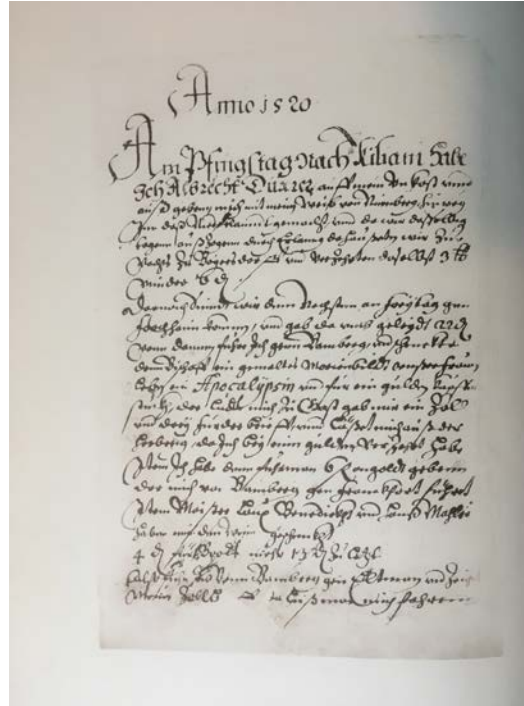 Anno 1520
Am Pfingstag nach Kiliani habe
Ich Albrecht Dürer auff mein Un kost und
auß geben mich mit mein weib von Nürnberg hinweg
Inn daß Niederlandt gemacht und da wir deßelbig
tagem auß zogen durch Erlang da
nachts zu Baiersdorff und verzehrten daselbst 3
minder 6
Darnach sindt wir den nechsten am Freytag gen
Forchheim kommen, und gab da umb geleydt 22
Vonn dannen fuhre Ich genn Bamberg, und schenckte
dem Bischoff ein gemaltes Marienbildt unser Fraun
leben ein Apocalypsin und für ein gulden kupffer
stuckh, der ludt mich zu Gast gab mir ein Zoll
und drey fürder brieff und lößet mich auß der
herberg, da Ich bey einem gulden verzehrt habe
Item Ich habe dem fuhrman 6 goldt geben
der mich von Bamberg gen Franckfurt führet
Item Maister Benedict und Hanß Mahler
haben mir den wein geschenckt
4
Vonn Bamberg gen Eltman und
mein Zoll mich fahren